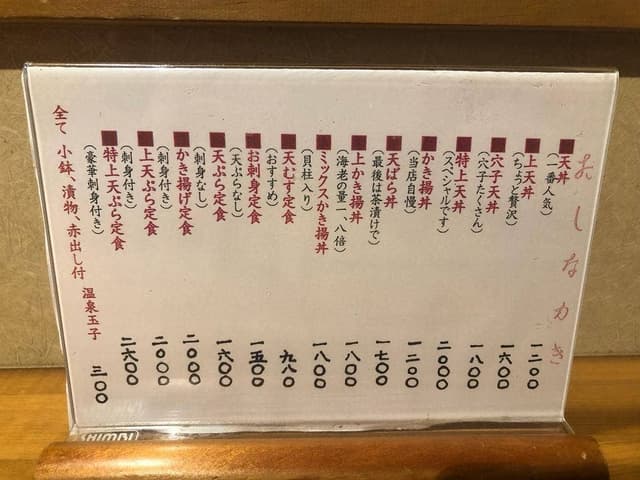 おしながき
天丼
(一番人気)
一二〇〇
上天丼
(ちょっと贅沢)
一六〇〇
穴子天丼
(穴子たくさん)
一八〇〇
特上天丼
(スペシャルです)
二〇〇〇
かき揚丼
(当店自慢)
一二〇〇
天ばら丼
(最後は茶漬けで)
一七〇〇
上かき揚丼
(海老の量一、八倍)
一八〇〇
ミックスかき揚丼
(貝柱入り)
一八〇〇
天むす定食
(おすすめ)
九八〇
お刺身定食
(天ぷらなし)
一五〇〇
天ぷら定食
(刺身なし)
一六〇〇
かき揚げ定食
(刺身付き)
二〇〇〇
上天ぷら定食
(刺身付き)
二〇〇〇
特上天ぷら定食
(豪華刺身付き)
二六〇〇
全て 小鉢、漬物、赤出し付 温泉玉子
三〇〇
SHIMBI